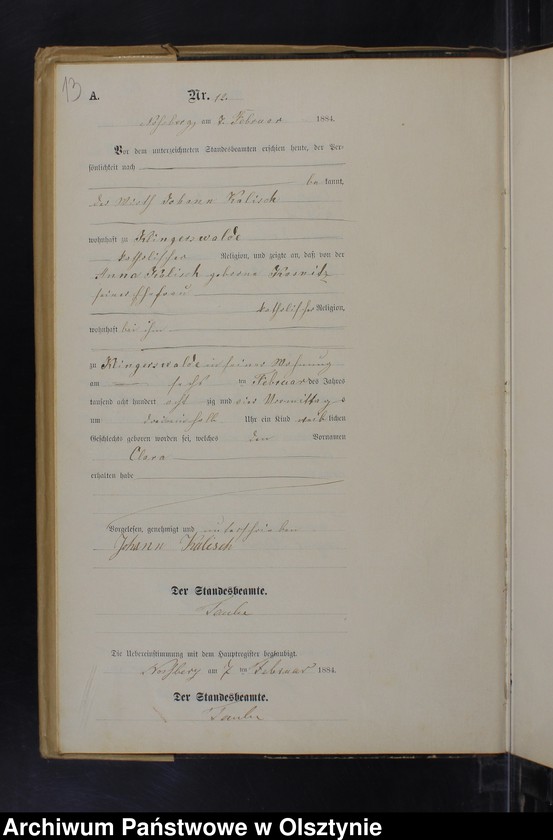 13
A. Nr. 12.
Noßberg, am 7. Februar 1884.
Vor dem unterzeichneten Standesbeamten erschien heute, der Per-
sönlichkeit nach
be kannt,
der Wirth Johann Kalisch
wohnhaft zu Klingerswalde
katholischer Religion, und zeigte an, daß von der
Anna Kalisch geborne
seiner Ehefrau
katholischer Religion,
wohnhaft bei ihm
zu Klingerswalde in seiner Wohnung
am sechs ten Februar des Jahres
tausend acht hundert acht zig und vier Vormittags
um Uhr ein Kind weib lichen
Geschlechts geboren worden sei, welches den Vornamen
Clara
erhalten habe
Vorgelesen, genehmigt und unterschrieben
Johann Kalisch
Der Standesbeamte.
Die Uebereinstimmung mit dem Hauptregister beglaubigt.
Noßberg am 7 ten Februar 1884.
Der Standesbeamte.
Archiwum Państwowe w Olsztynie